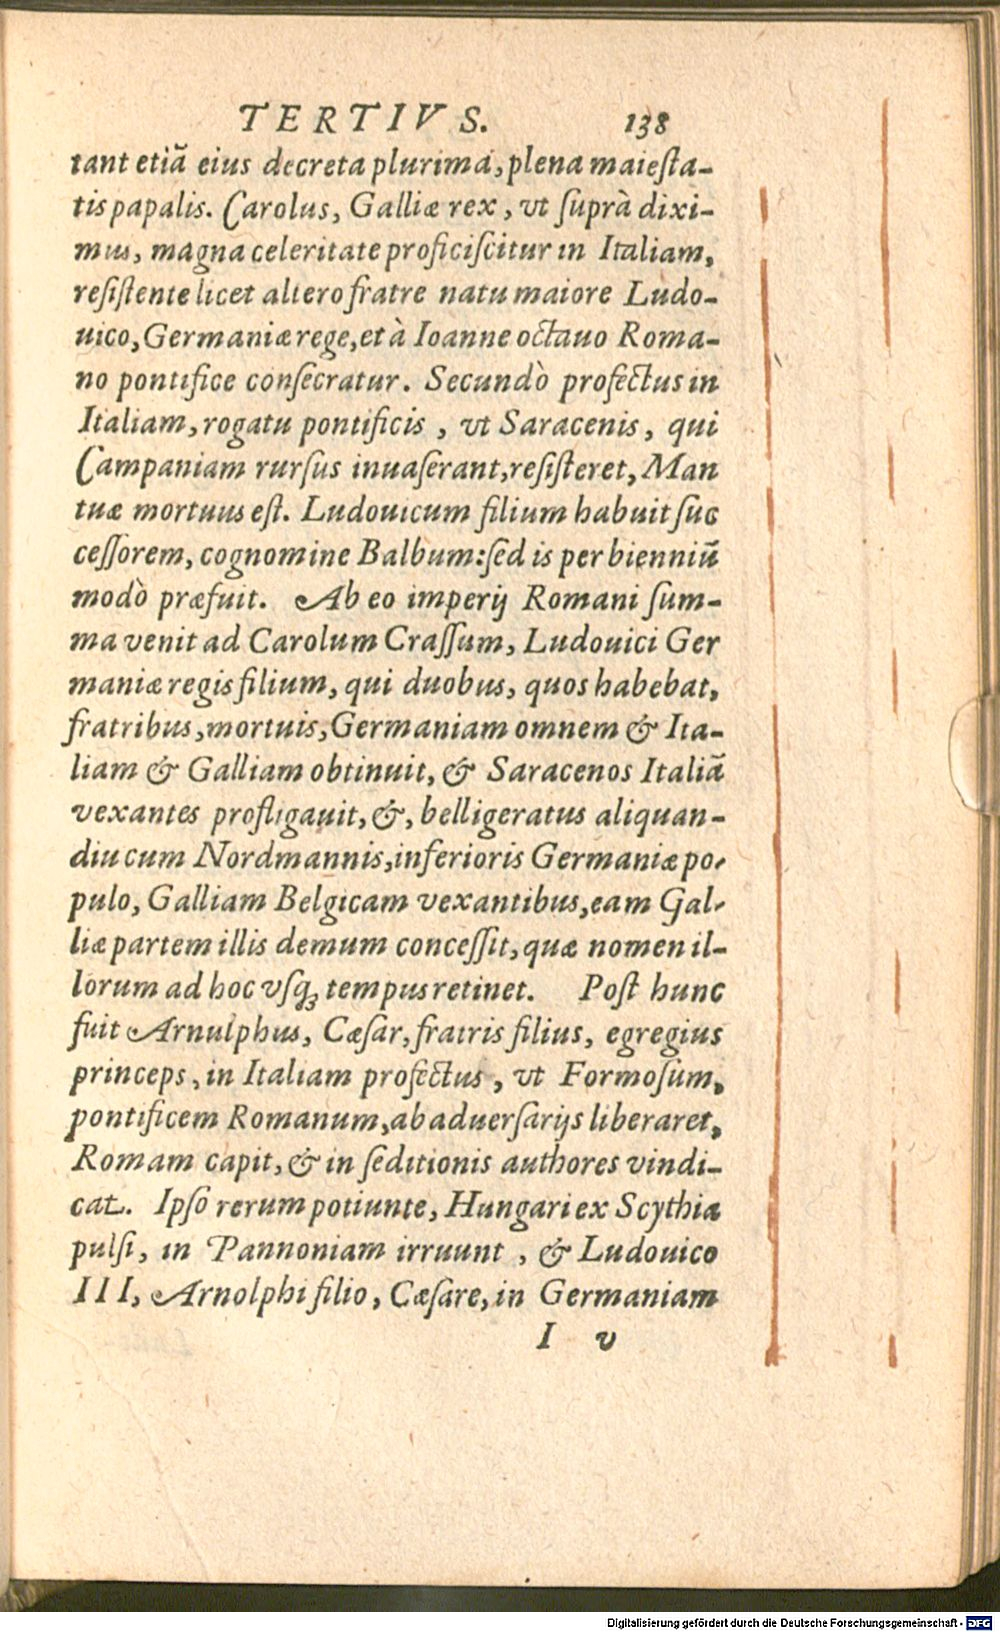 TERTIVS. 138
tant etiā eius decreta plurima, plena maiesta-
tis papalis. Carolus, Galliæ rex, vt suprà dixi-
mus, magna celeritate proficiscitur in Italiam,
resistente licet altero fratre natu maiore Ludo-
uico, Germaniæ rege, et à Ioanne octauo Roma-
no pontifice consecratur. Secundò profectus in
Italiam, rogatu pontificis, vt Saracenis, qui
Campaniam rursus inuaserant, resisteret, Man
tuæ mortuus est. Ludouicum filium habuit suc
cessorem, cognomine Balbum: sed is per bienniū
modò præfuit. Ab eo imperij Romani sum-
ma venit ad Carolum Crassum, Ludouici Ger
maniæ regis filium, qui duobus, quos habebat,
fratribus, mortuis, Germaniam omnem & Ita-
liam & Galliam obtinuit, & Saracenos Italiā
vexantes profligauit, &, belligeratus aliquan-
diu cum Nordmannis, inferioris Germaniæ po-
pulo, Galliam Belgicam vexantibus, eam Gal-
liæ partem illis demum concessit, quæ nomen il-
lorum ad hoc vsq; tempus retinet. Post hunc
fuit Arnulphus, Cæsar, fratris filius, egregius
princeps, in Italiam profectus, vt Formosum,
pontificem Romanum, ab aduersarijs liberaret,
Romam capit, & in seditionis authores vindi-
cat. Ipso rerum potiunte, Hungari ex Scythia
pulsi, in Pannoniam irruunt, & Ludouico
III, Arnolphi filio, Cæsare, in Germaniam
I v
Digitalisierung gefördert durch die Deutsche Forschungsgemeinschaft - DFG